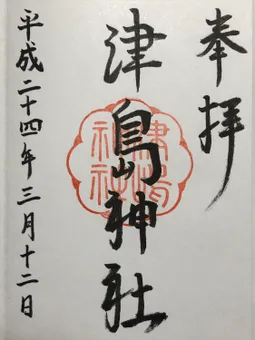 奉拝
津嶋神社
平成二十四年三月十二日
津嶋神社